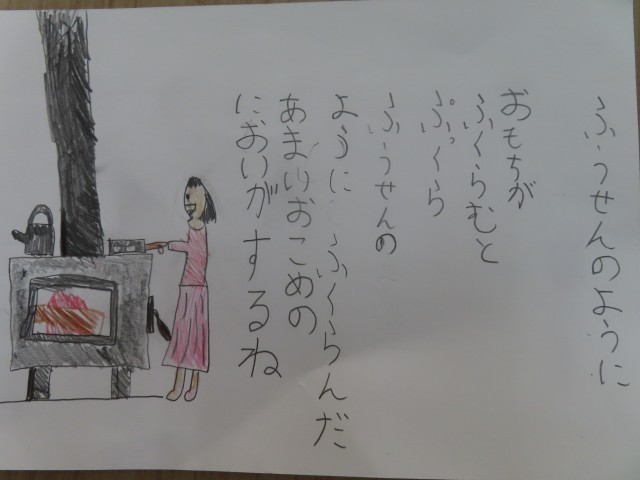 ふうせんのように
おもちが
ふくらむと
ぷっくら
ふうせんの
ように ふくらんだ
あまいおこめの
においがするね